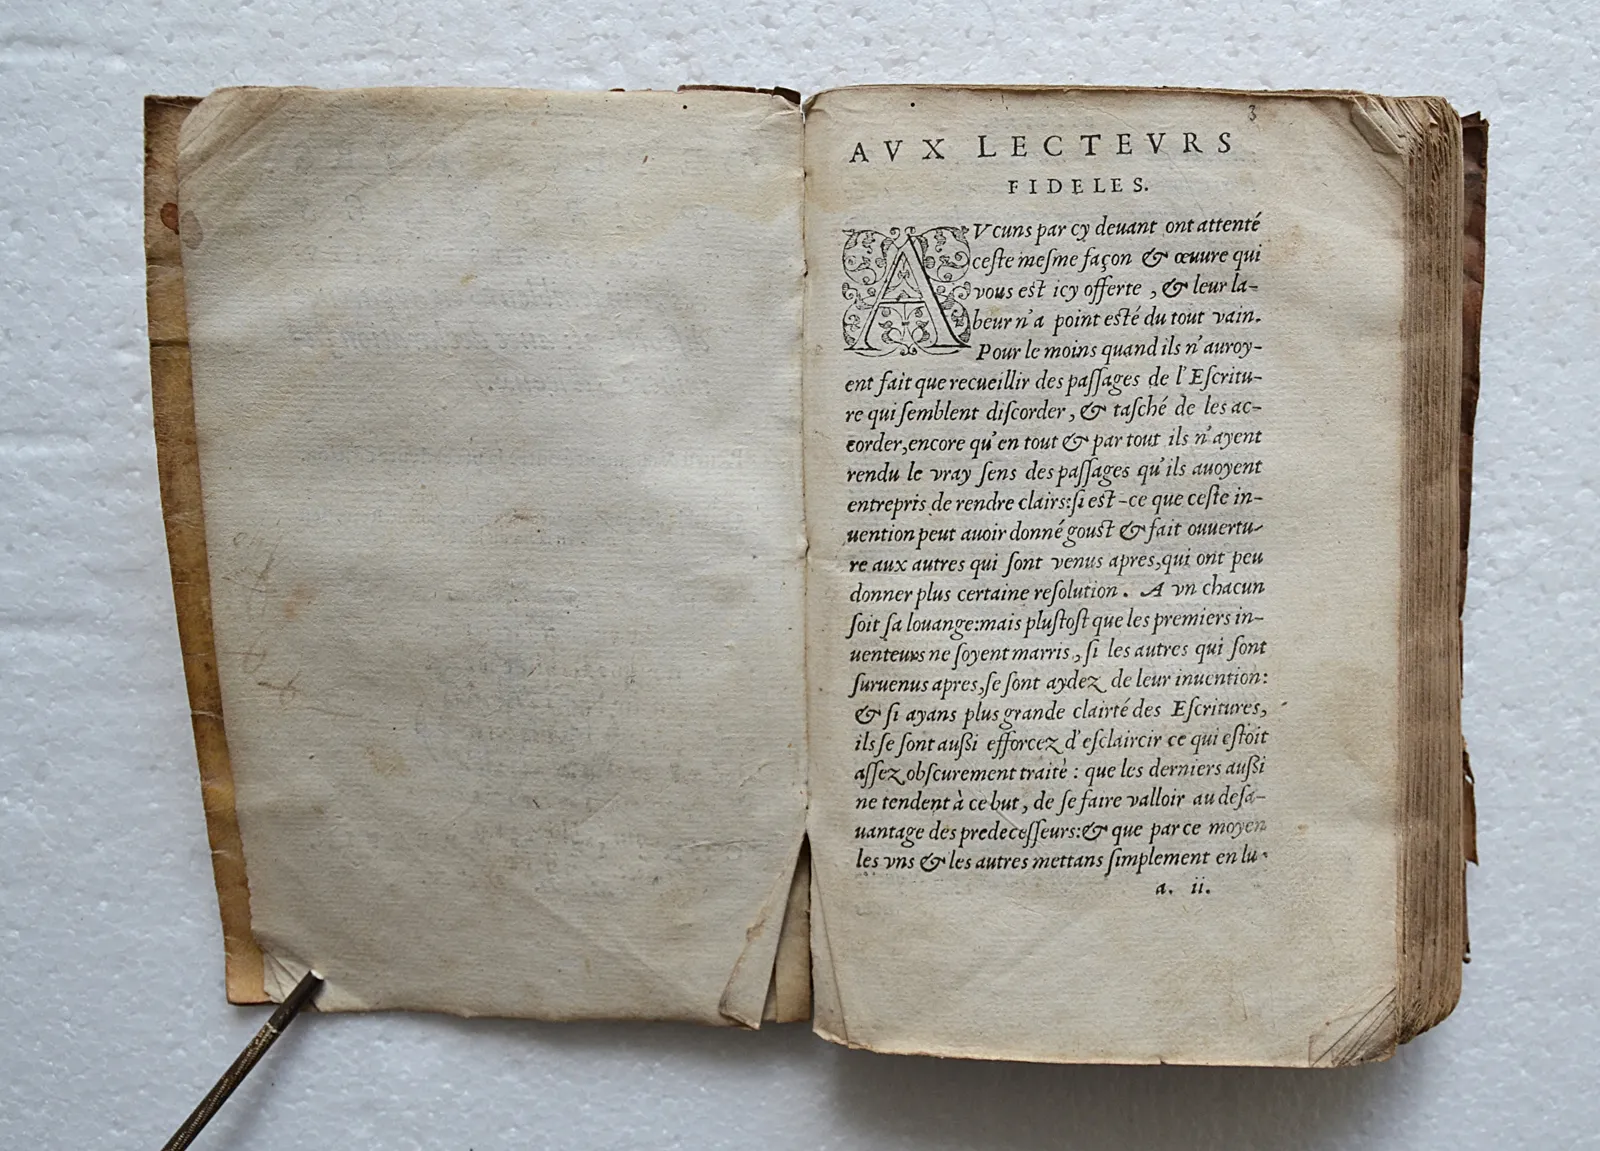 3
AVX LECTEVRS
FIDELES.
AVcuns par cy deuant ont attenté
ceſte meſme façon & œuure qui
vous est icy offerte, & leur la-
beur n'a point esté du tout vain.
Pour le moins quand ils n'auroy-
ent fait que recueillir des paſſages de l'Eſcritu-
re qui ſemblent diſcorder, & taſché de les ac-
corder, encore qu'en tout & par tout ils n'ayent
rendu le vray ſens des paſſages qu'ils auoyent
entrepris de rendre clairs: ſi est-ce que ceſte in-
uention peut auoir donné goust & fait ouuertu-
re aux autres qui ſont venus apres, qui ont peu
donner plus certaine reſolution. A vn chacun
ſoit ſa louange: mais pluſtoſt que les premiers in-
uenteurs ne ſoyent marris, ſi les autres qui ſont
ſuruenus apres, ſe ſont aydez de leur inuention:
& ſi ayans plus grande clairté des Eſcritures,
ils ſe ſont auſſi efforcez d'eſclaircir ce qui eſtoit
aſſez obſcurement traité: que les derniers auſſi
ne tendent à ce but, de ſe faire valloir au deſa-
uantage des predeceſſeurs: & que par ce moyen
les vns & les autres mettans ſimplement en lu-
a. ii.